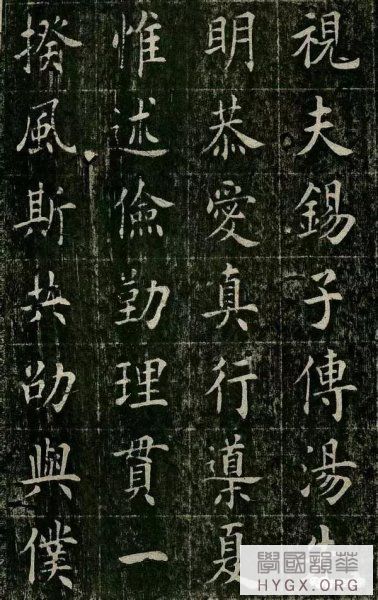 視夫錫子傳湯
明恭愛真行導夏
惟述儉勤理貫一
揆風斯共劭與僕
華韻國學
HYGX.ORG